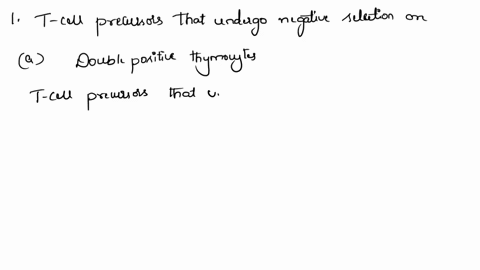 1. T-cell precursors that undergo negative selection on
(a) Double positive thymocytes
T-cell precursors that u.